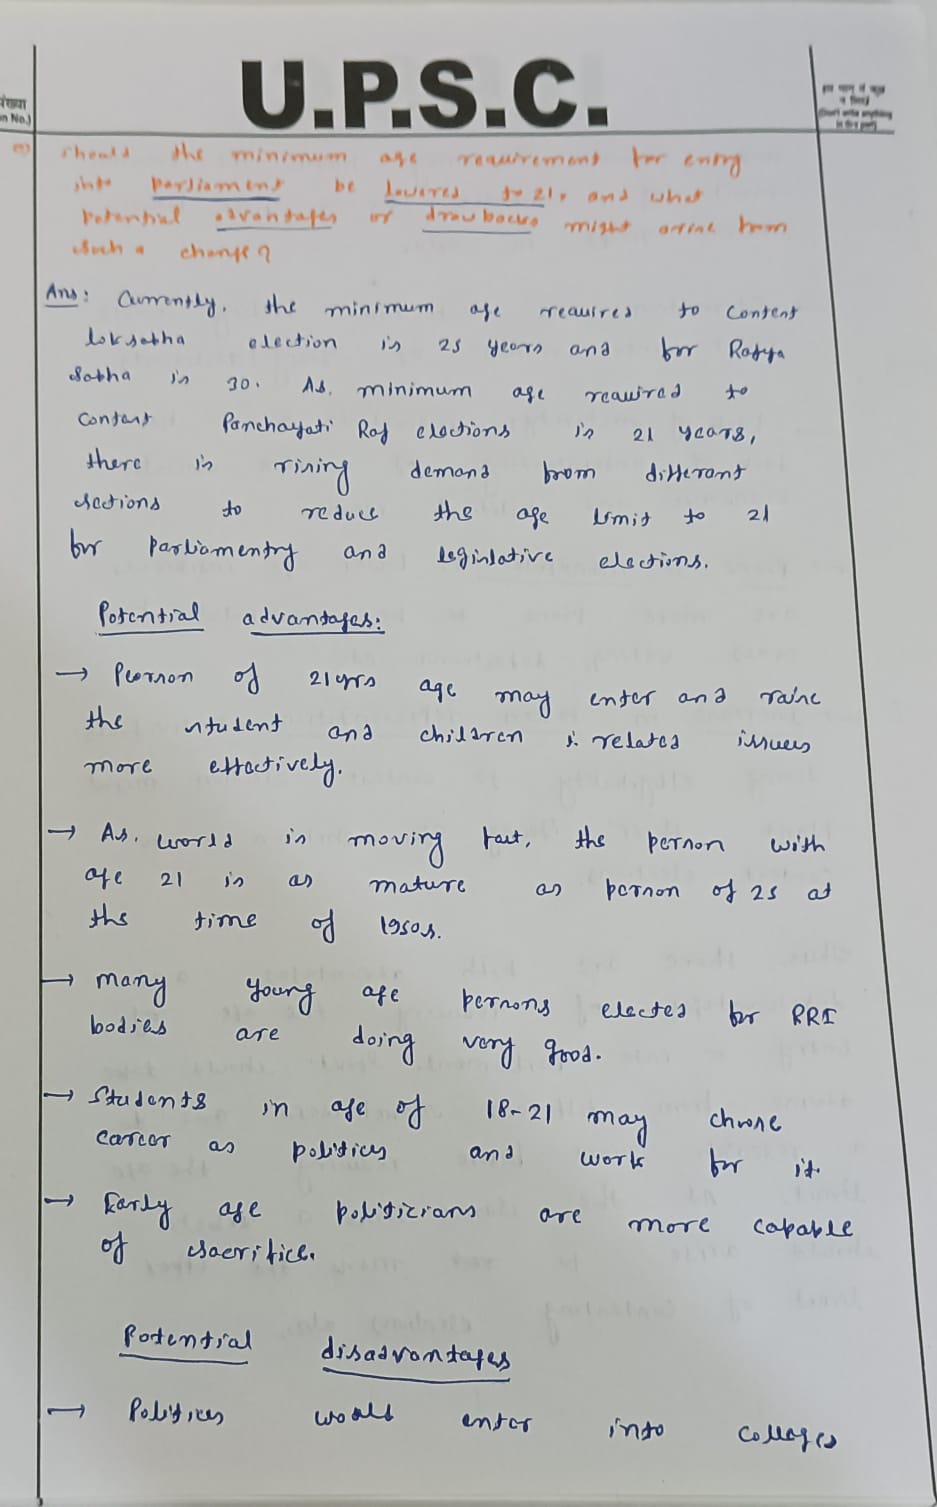 U.P.S.C.
संख्या
n No.)
इस भाग में कुछ
न लिखें
(Don't write anything
in this part)
Should the minimum age requirement for entry
into parliament be lowered to 21, and what
potential advantages or drawbacks might arise from
such a change?
Ans: Currently, the minimum age required to contest
loksabha election is 25 years and for Rajya
sabha is 30. As, minimum age required to
contest Panchayati Raj elections is 21 years,
there is rising demand from different
sections to reduce the age limit to 21
for parliamentry and legislative elections.
Potential advantages:
→ Person of 21 yrs age may enter and raise
the student and children related issues
more effectively.
→ As, world is moving fast, the person with
age 21 is as mature as person of 25 at
the time of 1950s.
→ Many young age persons elected for PRI
bodies are doing very good.
→ Students in age of 18-21 may chose
career as politics and work for it.
→ Early age politicians are more capable
of sacrifice.
Potential disadvantages
→ Politics would enter into colleges